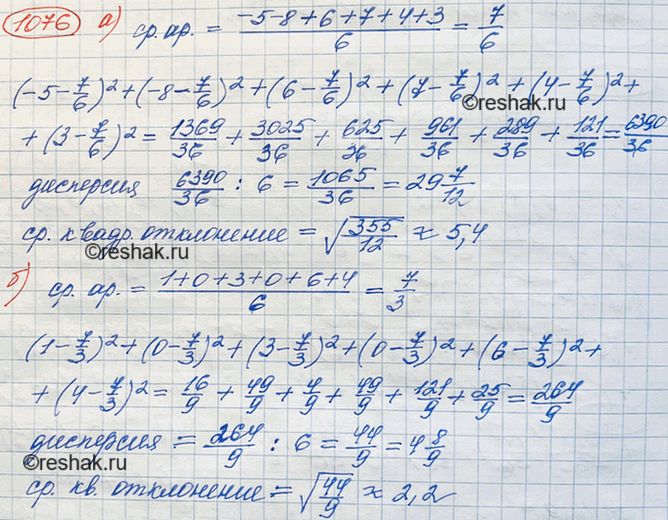 1076 а) ср. ар. = (-5-8+6+7+4+3)/6 = 7/6
(-5-7/6)² + (-8-7/6)² + (6-7/6)² + (7-7/6)² + (4-7/6)² +
©reshak.ru
+ (3-7/6)² = 1369/36 + 3025/36 + 625/36 + 961/36 + 289/36 + 121/36 = 6390/36
дисперсия 6390/36 : 6 = 1065/36 = 29 7/12
ср. квадр. отклонение = √355/12 ≈ 5,4
©reshak.ru
б) ср. ар. = (1+0+3+0+6+4)/6 = 7/3
(1-7/3)² + (0-7/3)² + (3-7/3)² + (0-7/3)² + (6-7/3)² +
+ (4-7/3)² = 16/9 + 49/9 + 4/9 + 49/9 + 121/9 + 25/9 = 264/9
дисперсия = 264/9 : 6 = 44/9 = 4 8/9
©reshak.ru
ср. кв. отклонение = √44/9 ≈ 2,2